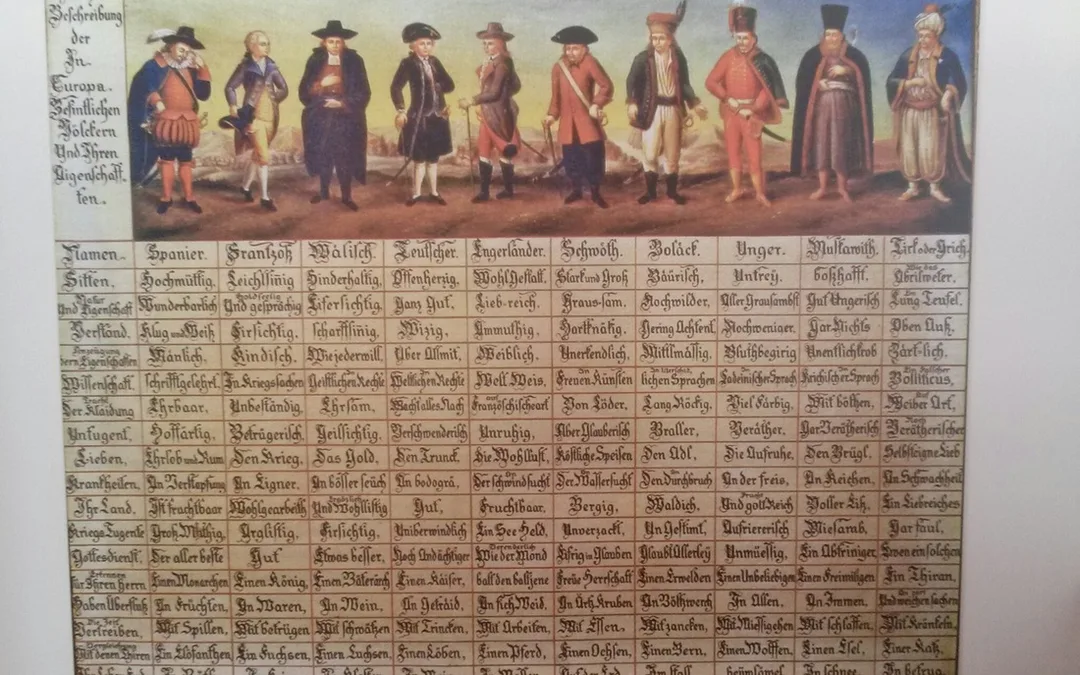 Beschreibung
der
In
Europa.
Befintlichen
Völckern
Und Ihren
Aigenschaff-
ten.
Namen. Spanier. Frantzoß Wälisch. Teutscher. Engerländer. Schwöth. Boläck. Unger. Muskawith. Tirk oder Griech.
Sitten, Hochmüttig, Leichtsinig Hinderhaltig, Offenherzig, Wohl Gestalt, Stark und Groß Bäürisch, Untrey, boßhafft, Wie das Abrilweter,
Natur Und Eigenschaft Wunderbarlich Und gesprächig Eifersichtig, Ganz Gut, Lieb-reich, Graus-sam, Noch wilder, Aller Grausambst Gut Ungerisch Lung Teufel,
Verstand. Klug und Weiß Firsichtig, scharffsinig, Wizig, Ammuthig, Hartknätig, Gering Achtent, Nochweniger, Gar Nichts Oben Auß,
Mänlich, Kindisch, Wiejederwill, Über Allmit, Weiblich, Unerkendlich, Mittlmässig, Bluthbegirig Unentlichkrob Zärt-lich,
Wissenschaft, schrifftgelehrt, In Kriegssachen Geistlichen Rechte Weltlichen Rechte Welt Weis, Freuen Künsten lichen Sprachen Ladeinischer Sprach Krichischer Sprach Bollitticus,
Der Klaidung Ehrbaar, Unbeständig, Ehrsam, Macht alles Nach Französchischeart Von Löder, Lang Röckig, Viel Färbig, Mit bölthen, Weiber Art,
Untugent, Hoffärtig, Betrügerisch, Geillsichtig, Verschwenderisch Unruhig, Aber Glauberisch Braller, Veräther, Gar Verätherisch Verätherischer
Lieben, Ehrlob und Rum Den Krieg, Das Gold, Den Trunck, Die Wohllust, Köstliche Speisen Den Adl, Die Aufruhe, Den Brügl, Selbsteigne Lieb
Krankheiten, An Verstopfung An Eigner, An bösser seüch An bodogrä, Der schwindsucht Der Wassersucht Den Durchbruch An der freis, An Keichen, An Schwachheit
Ihr Land. Ist fruchtbaar Wohlgearbeith Und Wohllistig Gut, Fruchtbaar, Bergig, Waldich, Und golt Reich Voller Eiß, Ein Liebreiches
Kriegs Tugente Groß Müthig, Arglistig, Firsichtig, Uniberwindlich Ein See Held, Unverzackt, Un Gestimt, Aufriererisch Miesamb, Gar faul,
Gottesdienst, Der aller beste Gut Etwas besser, Noch Andächtiger Wie der Mond Eifrig in Glauben Glaubt Allerley Unmüessig, Ein Abtriniger, Eweneinsolchen
Für Ihren herrn Einen Monarchen Einen König, Einen Kaiser, Freüe Herrschaft Einen Erwelden Einen Unbeliebigen Einen Freimilligen Ein Thiran,
Haben Überfluß An Früchten, An Waren, An Wein, An Getraid, An fich Weid, An Ärtz Kruben An Böltzwerch In Allen, An Immen, Und weichen sachen
Die Zeit Vertreiben, Mit Spillen, Mit betrügen Mit schwätzen Mit Trincken, Mit Arbeiten, Mit Essen, Mit zancken, Mit Miessigehen Mit schlaffen, Mit Kränkeln,
Mit denen Thiren Ein Elofanthen Ein Fuchsen, Einen Luchsen, Einen Löben, Einen Pferd, Einen Ochsen, Einen Bern, Einen Wolffen, Einen Esel, Einer Katz,